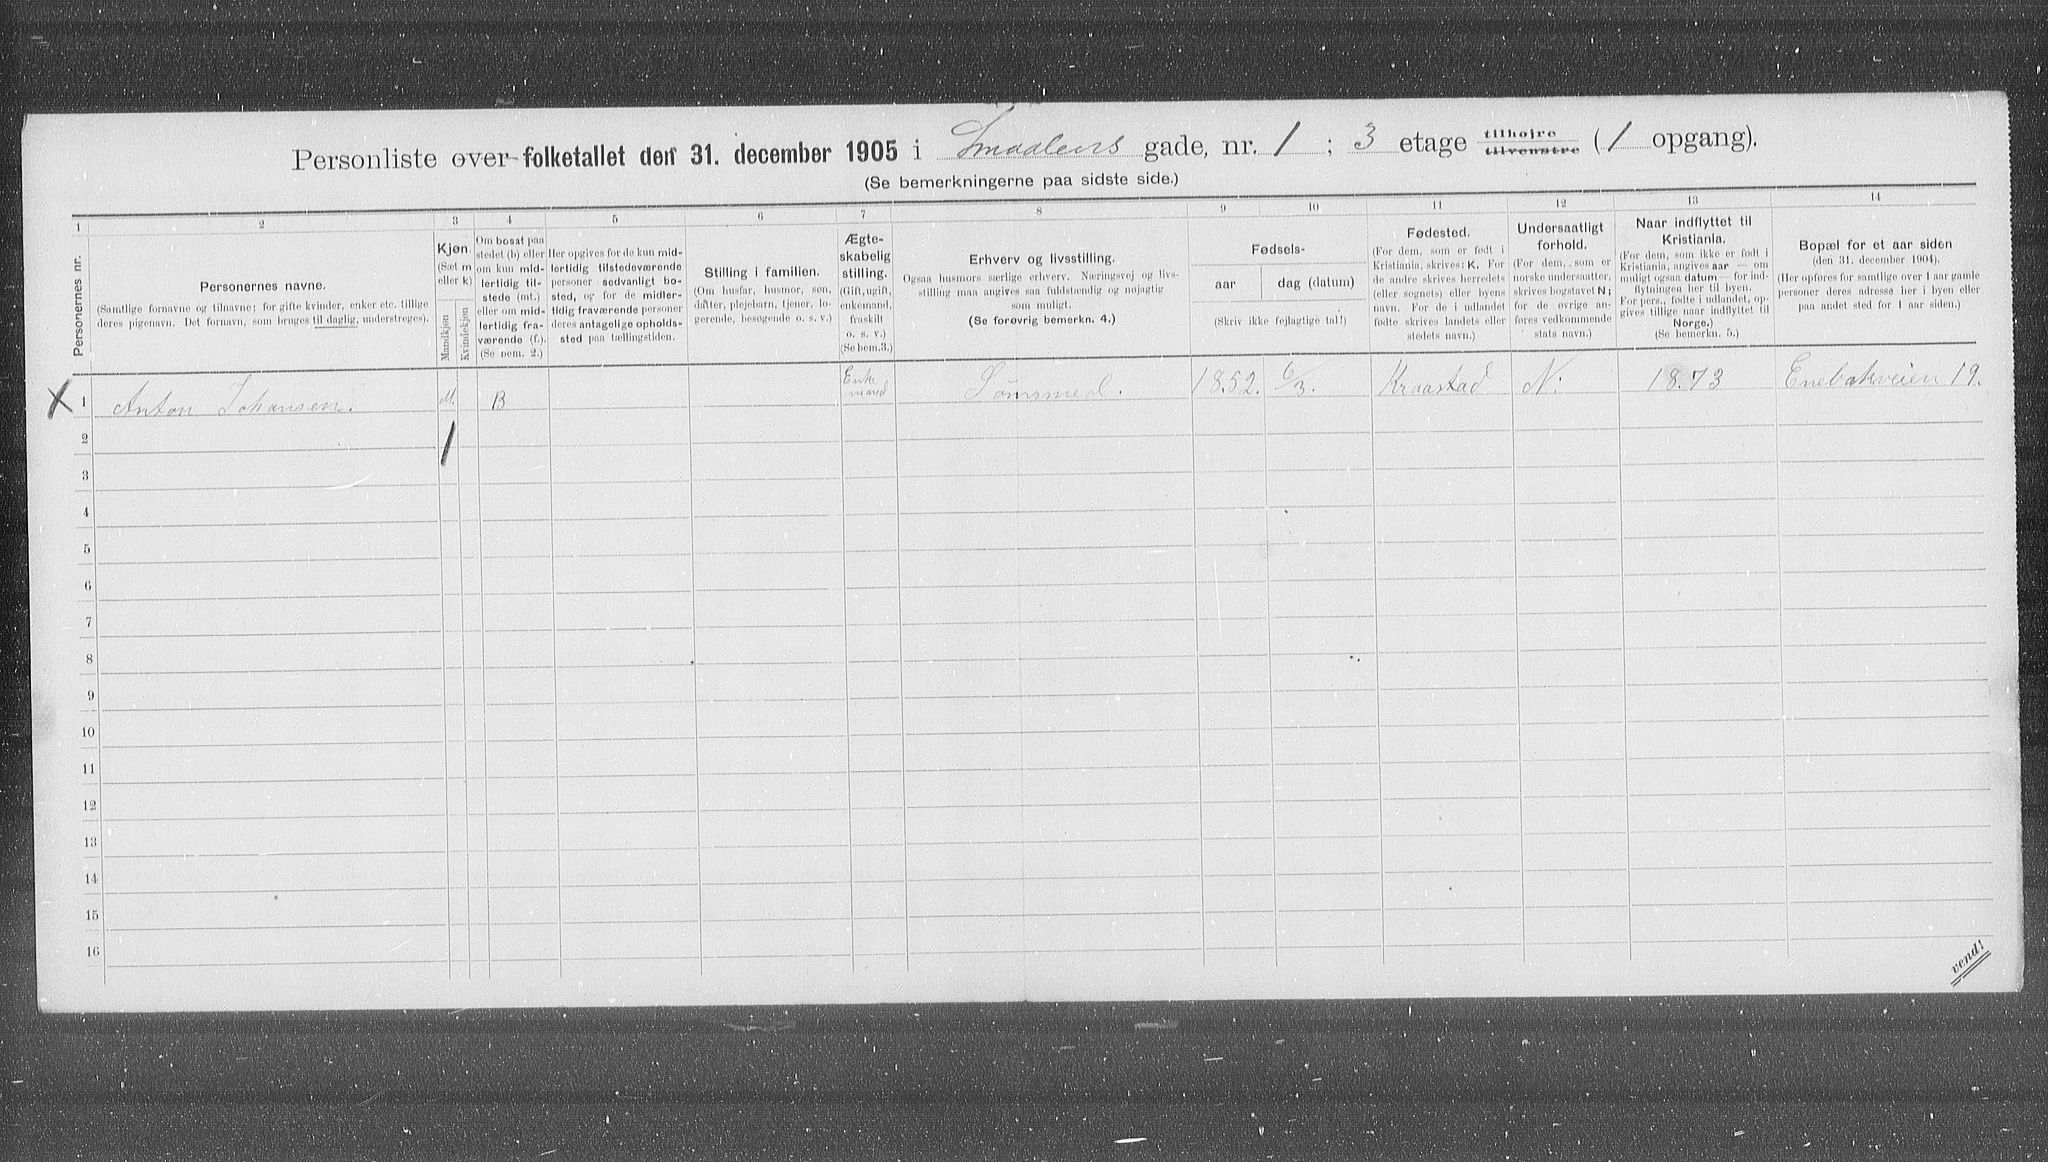 Personliste over folketallet den 31. december 1905 i Smaalens gade, nr. 1 ; 3 etage tilhøjre tilvenstre (1 opgang).
(Se bemerkningerne paa sidste side.)
1 2 3 4 5 6 7 8 9 10 11 12 13 14
Personernes nr.
Personernes navne.
(Samtlige fornavne og tilnavne; for gifte kvinder, enker etc. tillige
deres pigenavn. Det fornavn, som bruges til daglig, understreges).
Kjøn.
(Sæt m
eller k)
Mandkjøn
Kvindekjøn
Om bosat paa
stedet (b) eller
om kun mid-
lertidig til-
stede (mt.)
eller om mid-
lertidig fra-
værende (f.).
(Se bem. 2.)
Her opgives for de kun mid-
lertidig tilstedeværende
personer sedvanligt bo-
sted, og for de midler-
tidig fraværende personer
deres antagelige opholds-
sted paa tællingstiden.
Stilling i familien.
(Om husfar, husmor, søn,
datter, plejebarn, tjener, lo-
gerende, besøgende o. s. v.)
Ægte-
skabelig
stilling.
(Gift, ugift,
enkemand,
fraskilt
o. s. v.)
(Se bem.3.)
Erhverv og livsstilling.
Ogsaa husmors særlige erhverv. Næringsvej og livs-
stilling maa angives saa fuldstændig og nøjagtig
som muligt.
(Se forøvrig bemerkn. 4.)
Fødsels-
aar
dag (datum)
(Skriv ikke fejlagtige tal!)
Fødested.
(For dem, som er født i
Kristiania, skrives: K. For
de andre skrives herredets
(eller sognets) eller byens
navn. For de i udlandet
fødte skrives landets eller
stedets navn.)
Undersaatligt
forhold.
(For dem, som er
norske undersaatter,
skrives bogstavet N;
for de øvrige an-
føres vedkommende
stats navn.)
Naar indflyttet til
Kristiania.
(For dem, som ikke er født i
Kristiania, angives aar — om
muligt ogsaa datum — for ind-
flytningen her til byen.
For pers., fødte i udlandet, op-
gives tillige naar indflyttet til
Norge.)
(Se bemerkn. 5.)
Bopæl for et aar siden
(den 31. december 1904).
(Her opføres for samtlige over 1 aar gamle
personer deres adresse her i byen eller
paa andet sted for 1 aar siden.)
X 1 Anton Johansen. M. B Enke mand Sømsmed. 1852. 6/3. Kraastad N: 1873 Enebakveien 19.
2 1
3
4
5
6
7
8
9
10
11
12
13
14
15
16
vend!